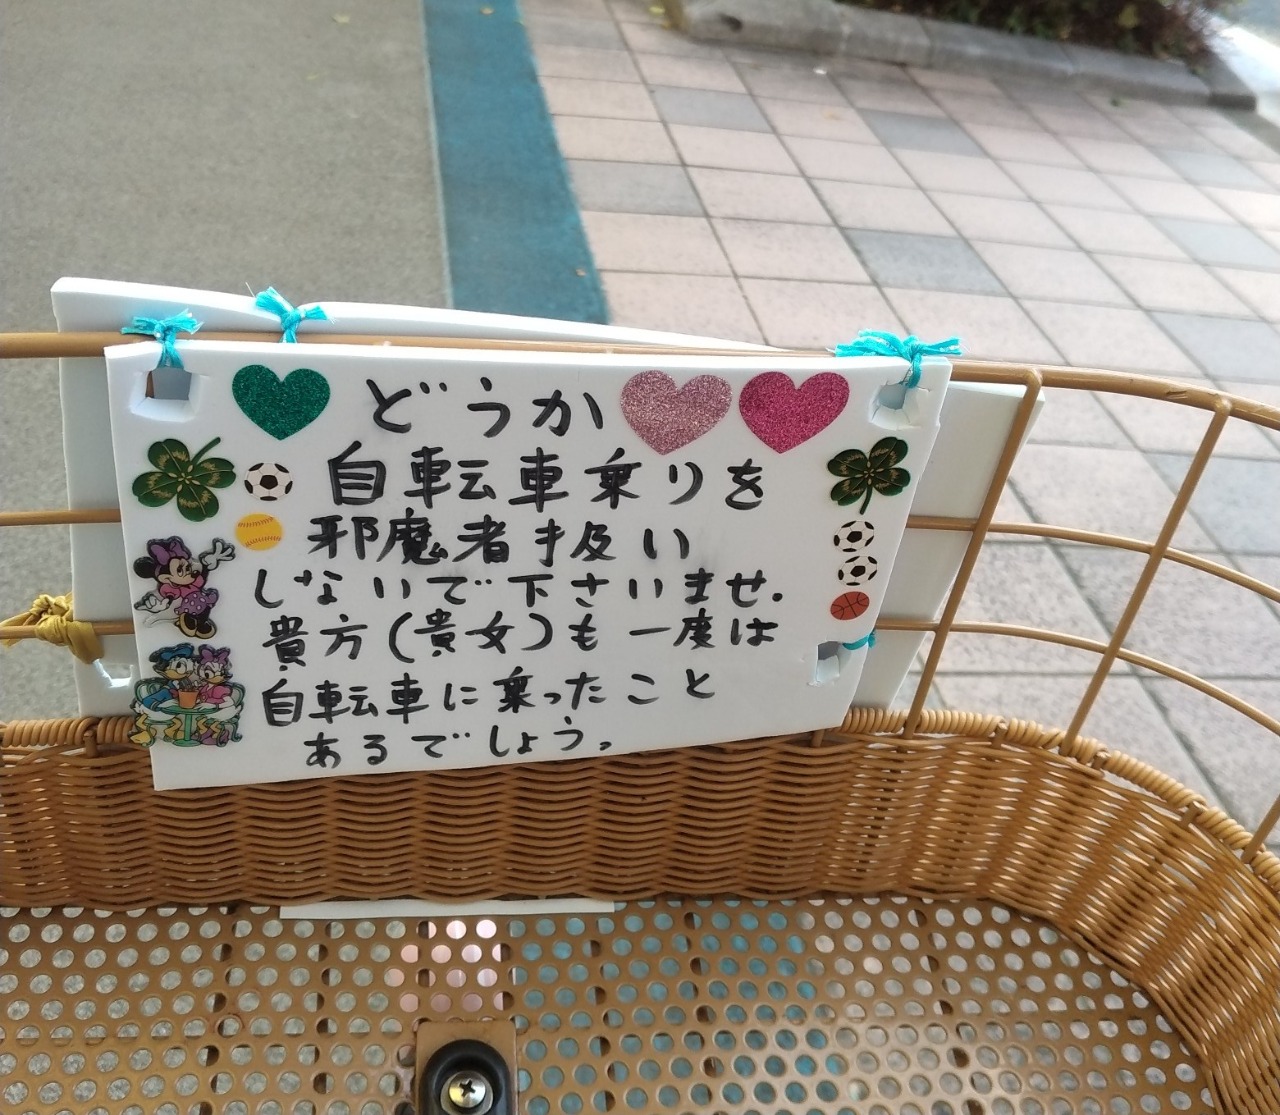 どうか
自転車乗りを
邪魔者扱い
しないで下さいませ.
貴方(貴女)も一度は
自転車に乗ったこと
あるでしょう。